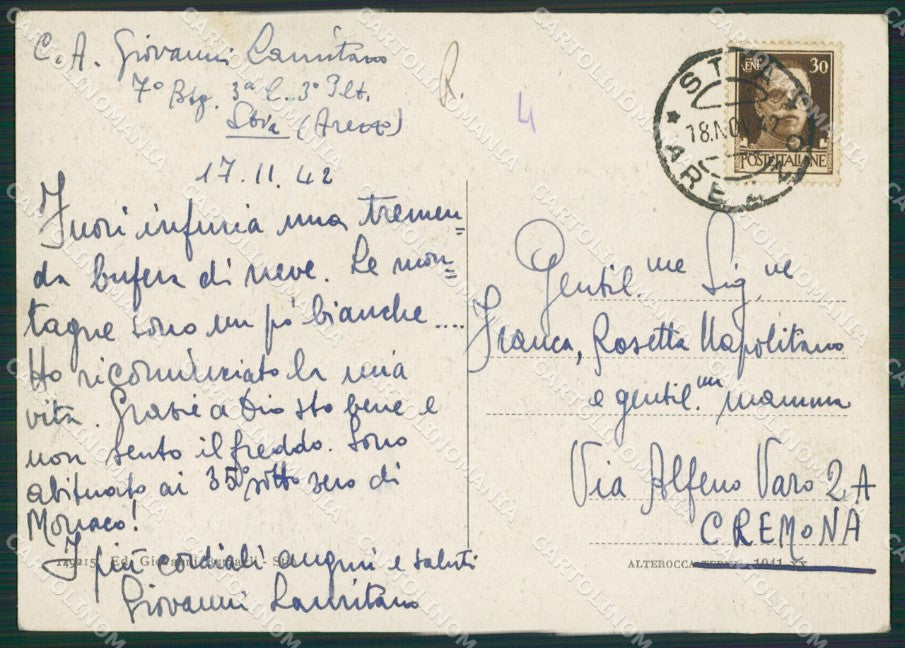 C. A. Giovanni Lauritano
7° Btg. 3ª C. 3° Plt.
Stia (Arezzo)
17.11.42
Fuori infuria una tremen=
da bufera di neve. Le mon=
tagne sono un pò bianche....
Ho ricominciato la mia
vita. Grazie a Dio sto bene e
non sento il freddo. Sono
abituato ai 35° sotto zero di
Monaco!
I più cordiali auguri e saluti
Giovanni Lauritano
R.
4
30
POSTE ITALIANE
18.NO
AREZZO
Gentil.me Sig.ne
Franca, Rosetta Napolitano
e gentil.ma mamma
Via Alfeno Varo 2A
CREMONA
Ed. Giovanni
ALTEROCCA TERNI 1941-XX
CARTOLINOMANIA